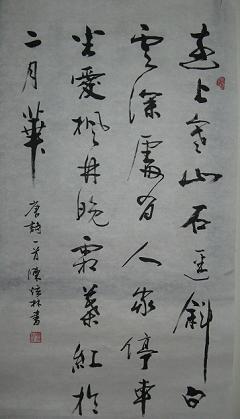 遠上寒山石逕斜白
雲深處有人家停車
坐愛楓林晚霜葉紅於
二月華
唐詩一首陳林書